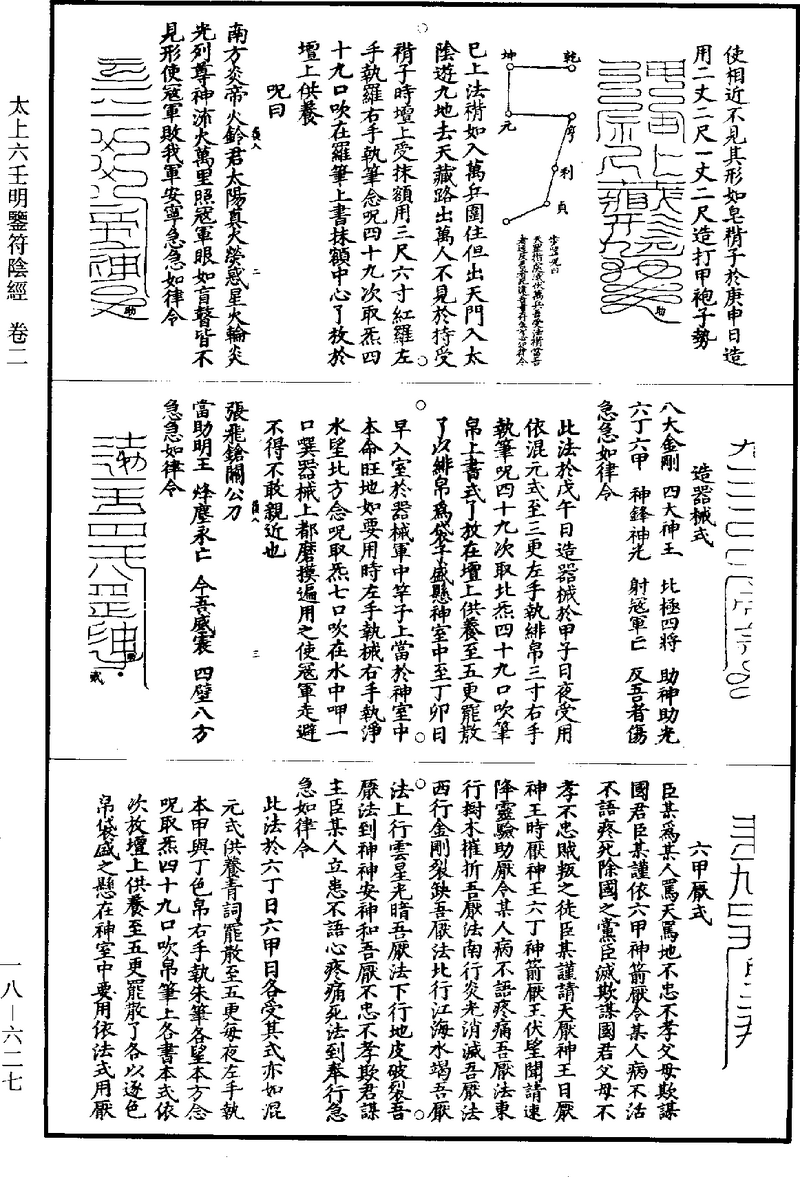 太上六壬明鑒符陰經　卷二
一八—六二七
使相近不見其形如皂褙子於庚申日造
用二丈二尺一丈二尺造打甲袍子勢
助
乾
坤
元
亨
利
貞
巳上法褙如入萬兵圍住但出天門入太
陰遊九地去天藏路出萬人不見於持受
褙子時壇上受抹額用三尺六寸紅羅左
手執羅右手執筆念呪四十九次取炁四
十九口吹在羅筆上書抹額中心了放於
壇上供養
呪曰
南方炎帝火鈴君太陽真火熒惑星火輪炎
光列尊神流火萬里照寇軍眼如盲瞽皆不
見形使寇軍敗我軍安寧急急如律令
二
助
造器械式
八大金剛　四大神王　北極四將　助神助光
六丁六甲　神鋒神光　射寇軍亡　反吾者傷
急急如律令
此法於戊午日造器械於甲子日夜受用
依混元式至三更左手執緋帛三寸右手
執筆呪四十九次取北炁四十九口吹筆
帛上書式了放在壇上供養至五更罷散
了以緋帛為袋子盛懸神室中至丁卯日
早入室於器械軍中竿子上當於神室中
本命旺地如要用時左手執械右手執淨
水望北方念呪取炁七口吹在水中呷一
口噀器械上都磨摸遍用之使寇軍走避
不得不敢親近也
張飛鎗關公刀
當助明王　烽塵永亡　令吾威震　四壁八方
急急如律令
三
六甲厭式
臣某為某人罵天罵地不忠不孝父母欺謀
國君臣某謹依六甲神箭厭令某人病不活
不語疼死除國之黨臣滅欺謀國君父母不
孝不忠賊叛之徒臣某謹請天厭神王日厭
神王時厭神王六丁神箭厭王伏望聞請速
降靈驗助厭令某人病不語疼痛吾厭法東
行樹木摧折吾厭法南行炎光消滅吾厭法
西行金剛裂鈌吾厭法北行江海水竭吾厭
法上行雲星光暗吾厭法下行地皮破裂吾
厭法到神神安神和吾厭不忠不孝欺君謀
主臣某人立患不語心疼痛死法到奉行急
急如律令
此法於六丁日六甲日各受其式亦如混
元式供養青詞罷散至五更每夜左手執
本甲與丁色帛右手執朱筆各望本方念
呪取炁四十九口吹帛筆上各書本式依
次放壇上供養至五更罷散了各以逐色
帛袋盛之懸在神室中要用依法式用厭